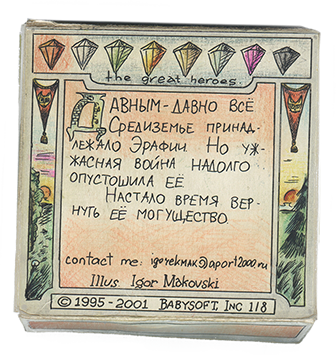 the great heroes
Давным-давно всё
Средиземье принад-
лежало Эрафии Но уж-
жасная война надолго
опустошила её
Настало время вер-
нуть её могущество
contact me: igorekmak@aport2000.ru
Illus Igor Makovski
© 1995-2001 BABYSOFT, INC 1/8